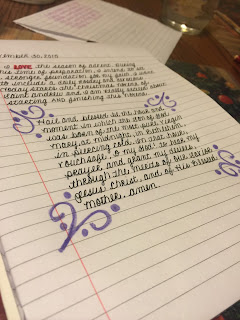 I LOVE the season of advent. During
this time of preparation, I intend to set
a stronger foundation for my faith. I want
to include a daily rosary and versicle
today starts the Christmas novena of
Saint Andrew and I am really excited about
starting AND finishing this novena.
Hail and blessed be the hour and
moment in which the Son of God
was born of the most pure Virgin
Mary, at midnight, in Bethlehem,
in piercing cold. In that hour,
vouchsafe, O my God! to hear my
prayer and grant my desires,
through the merits of Our Savior
Jesus Christ, and of His Blessed
Mother. Amen.